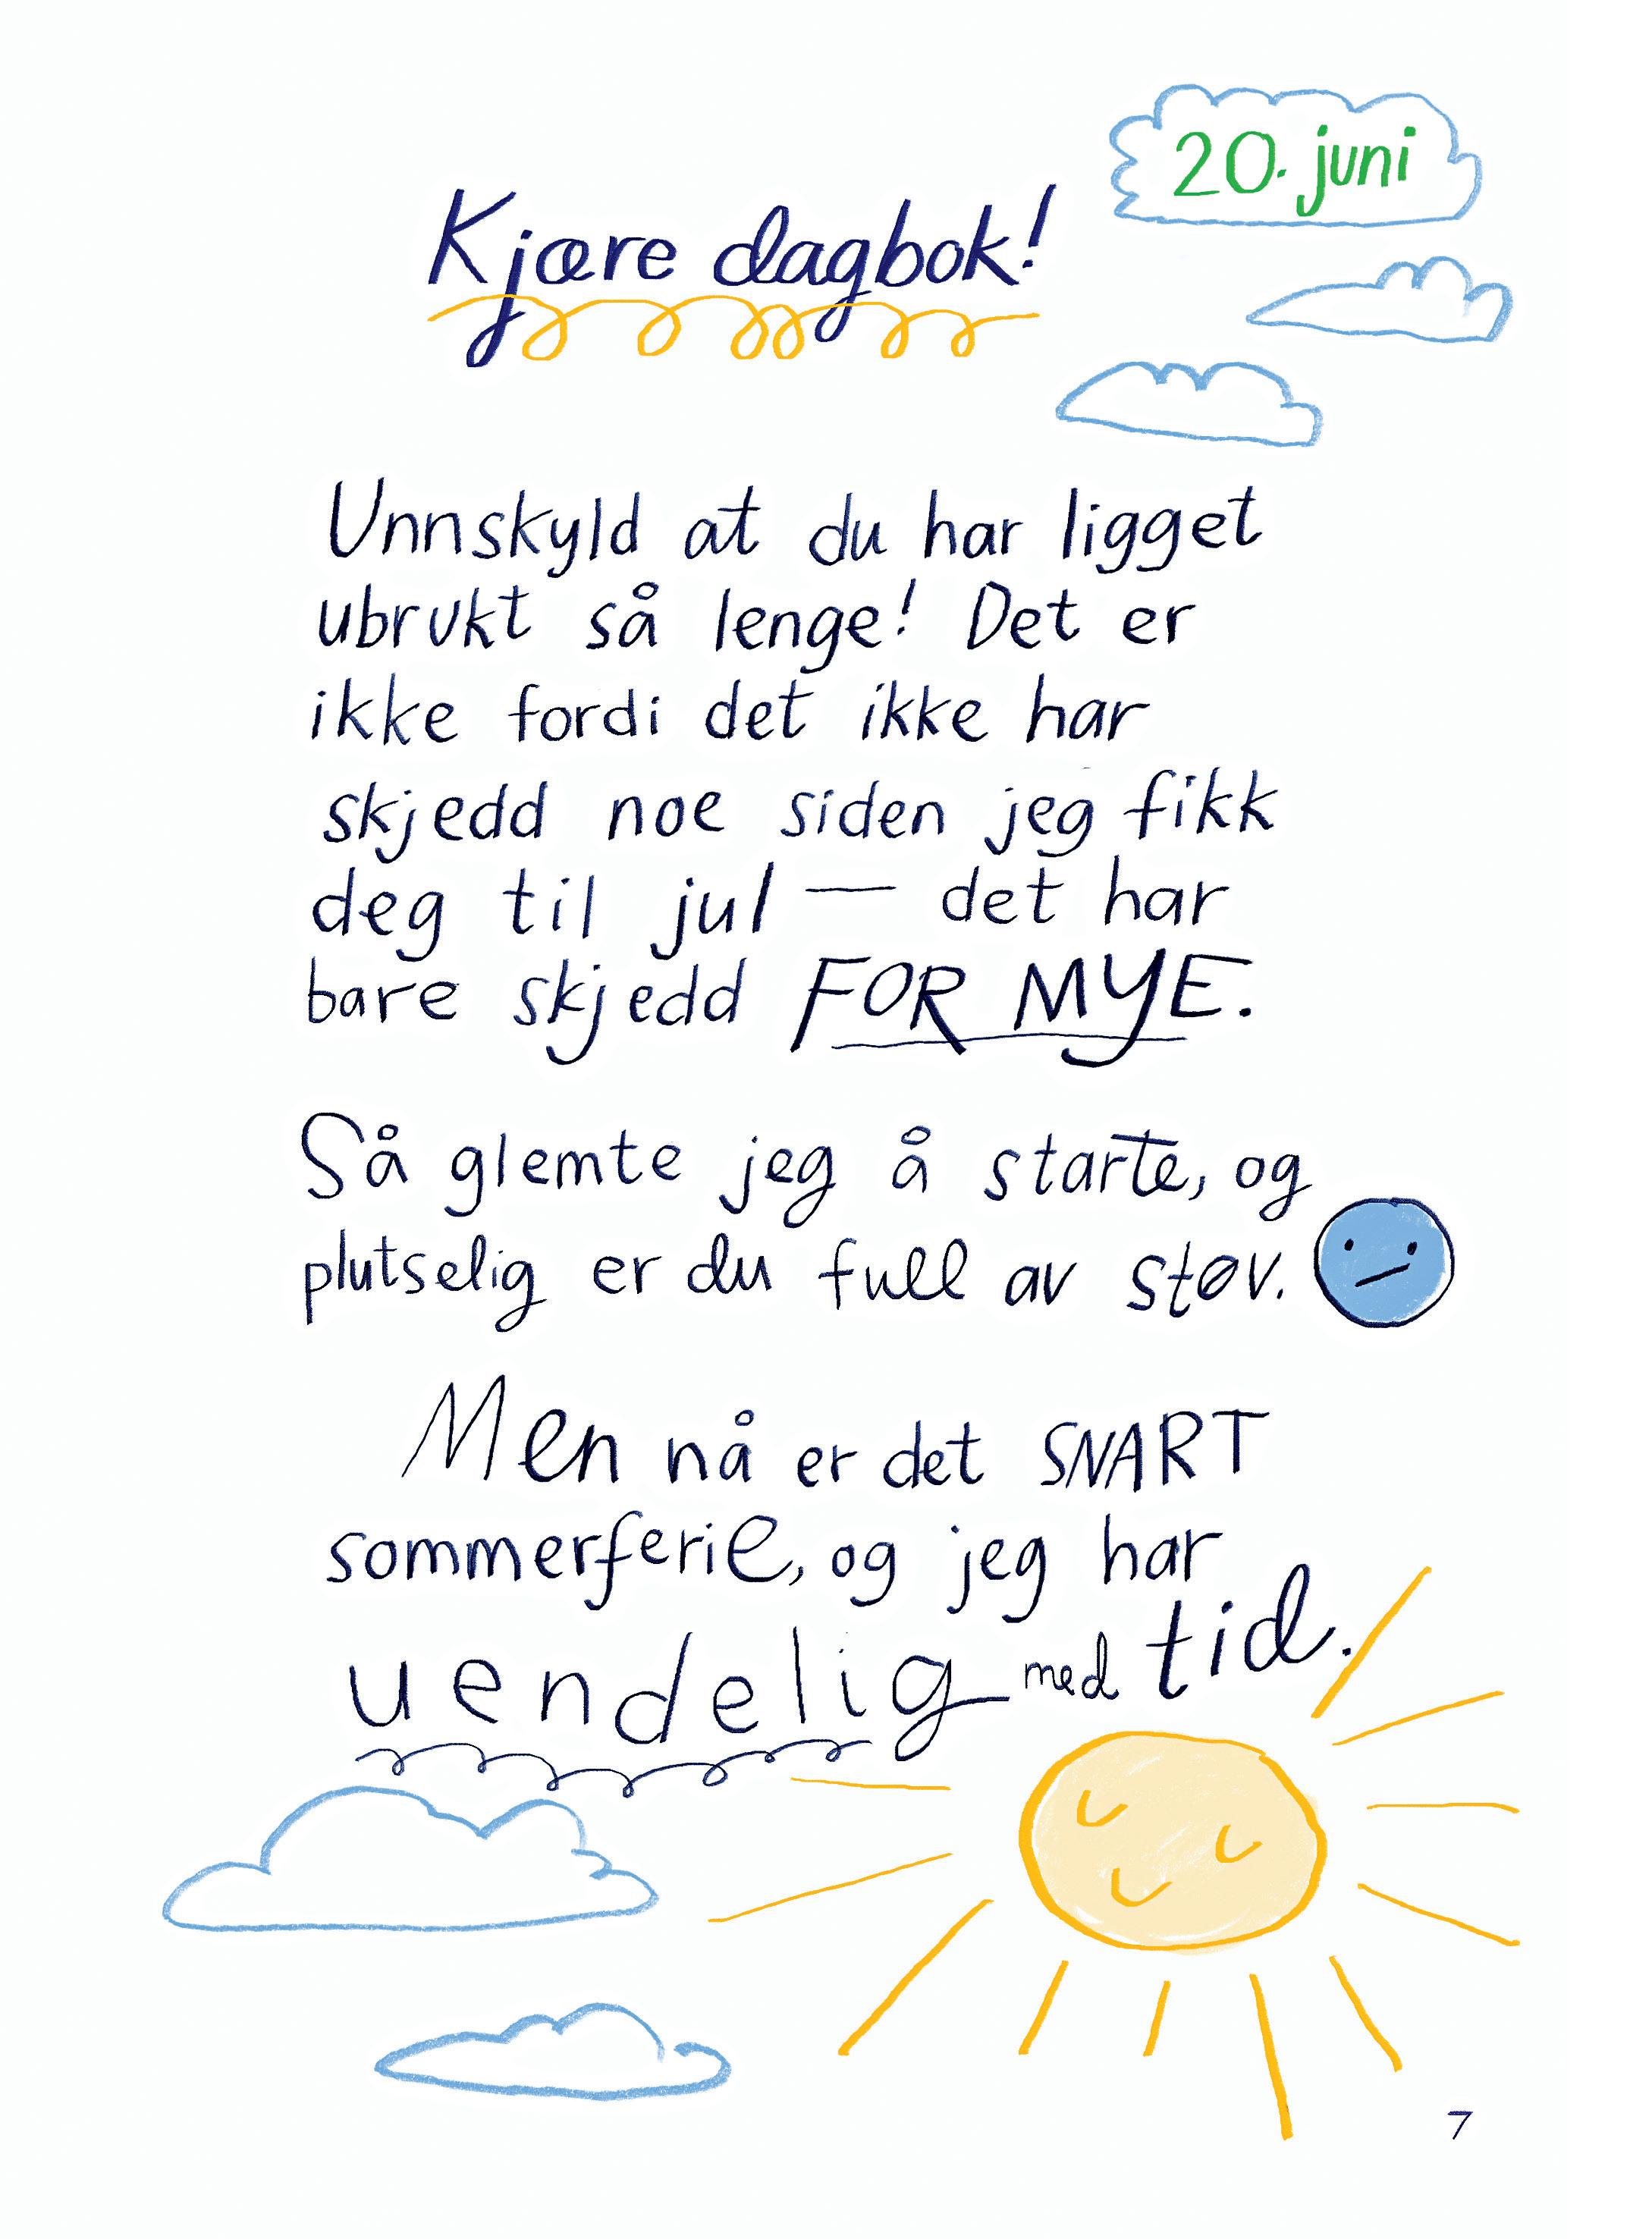 20. juni
Kjære dagbok!
Unnskyld at du har ligget
ubrukt så lenge! Det er
ikke fordi det ikke har
skjedd noe siden jeg fikk
deg til jul — det har
bare skjedd FOR MYE.
Så glemte jeg å starte, og
plutselig er du full av støv.
Men nå er det SNART
sommerferie, og jeg har
uendelig med tid.
7